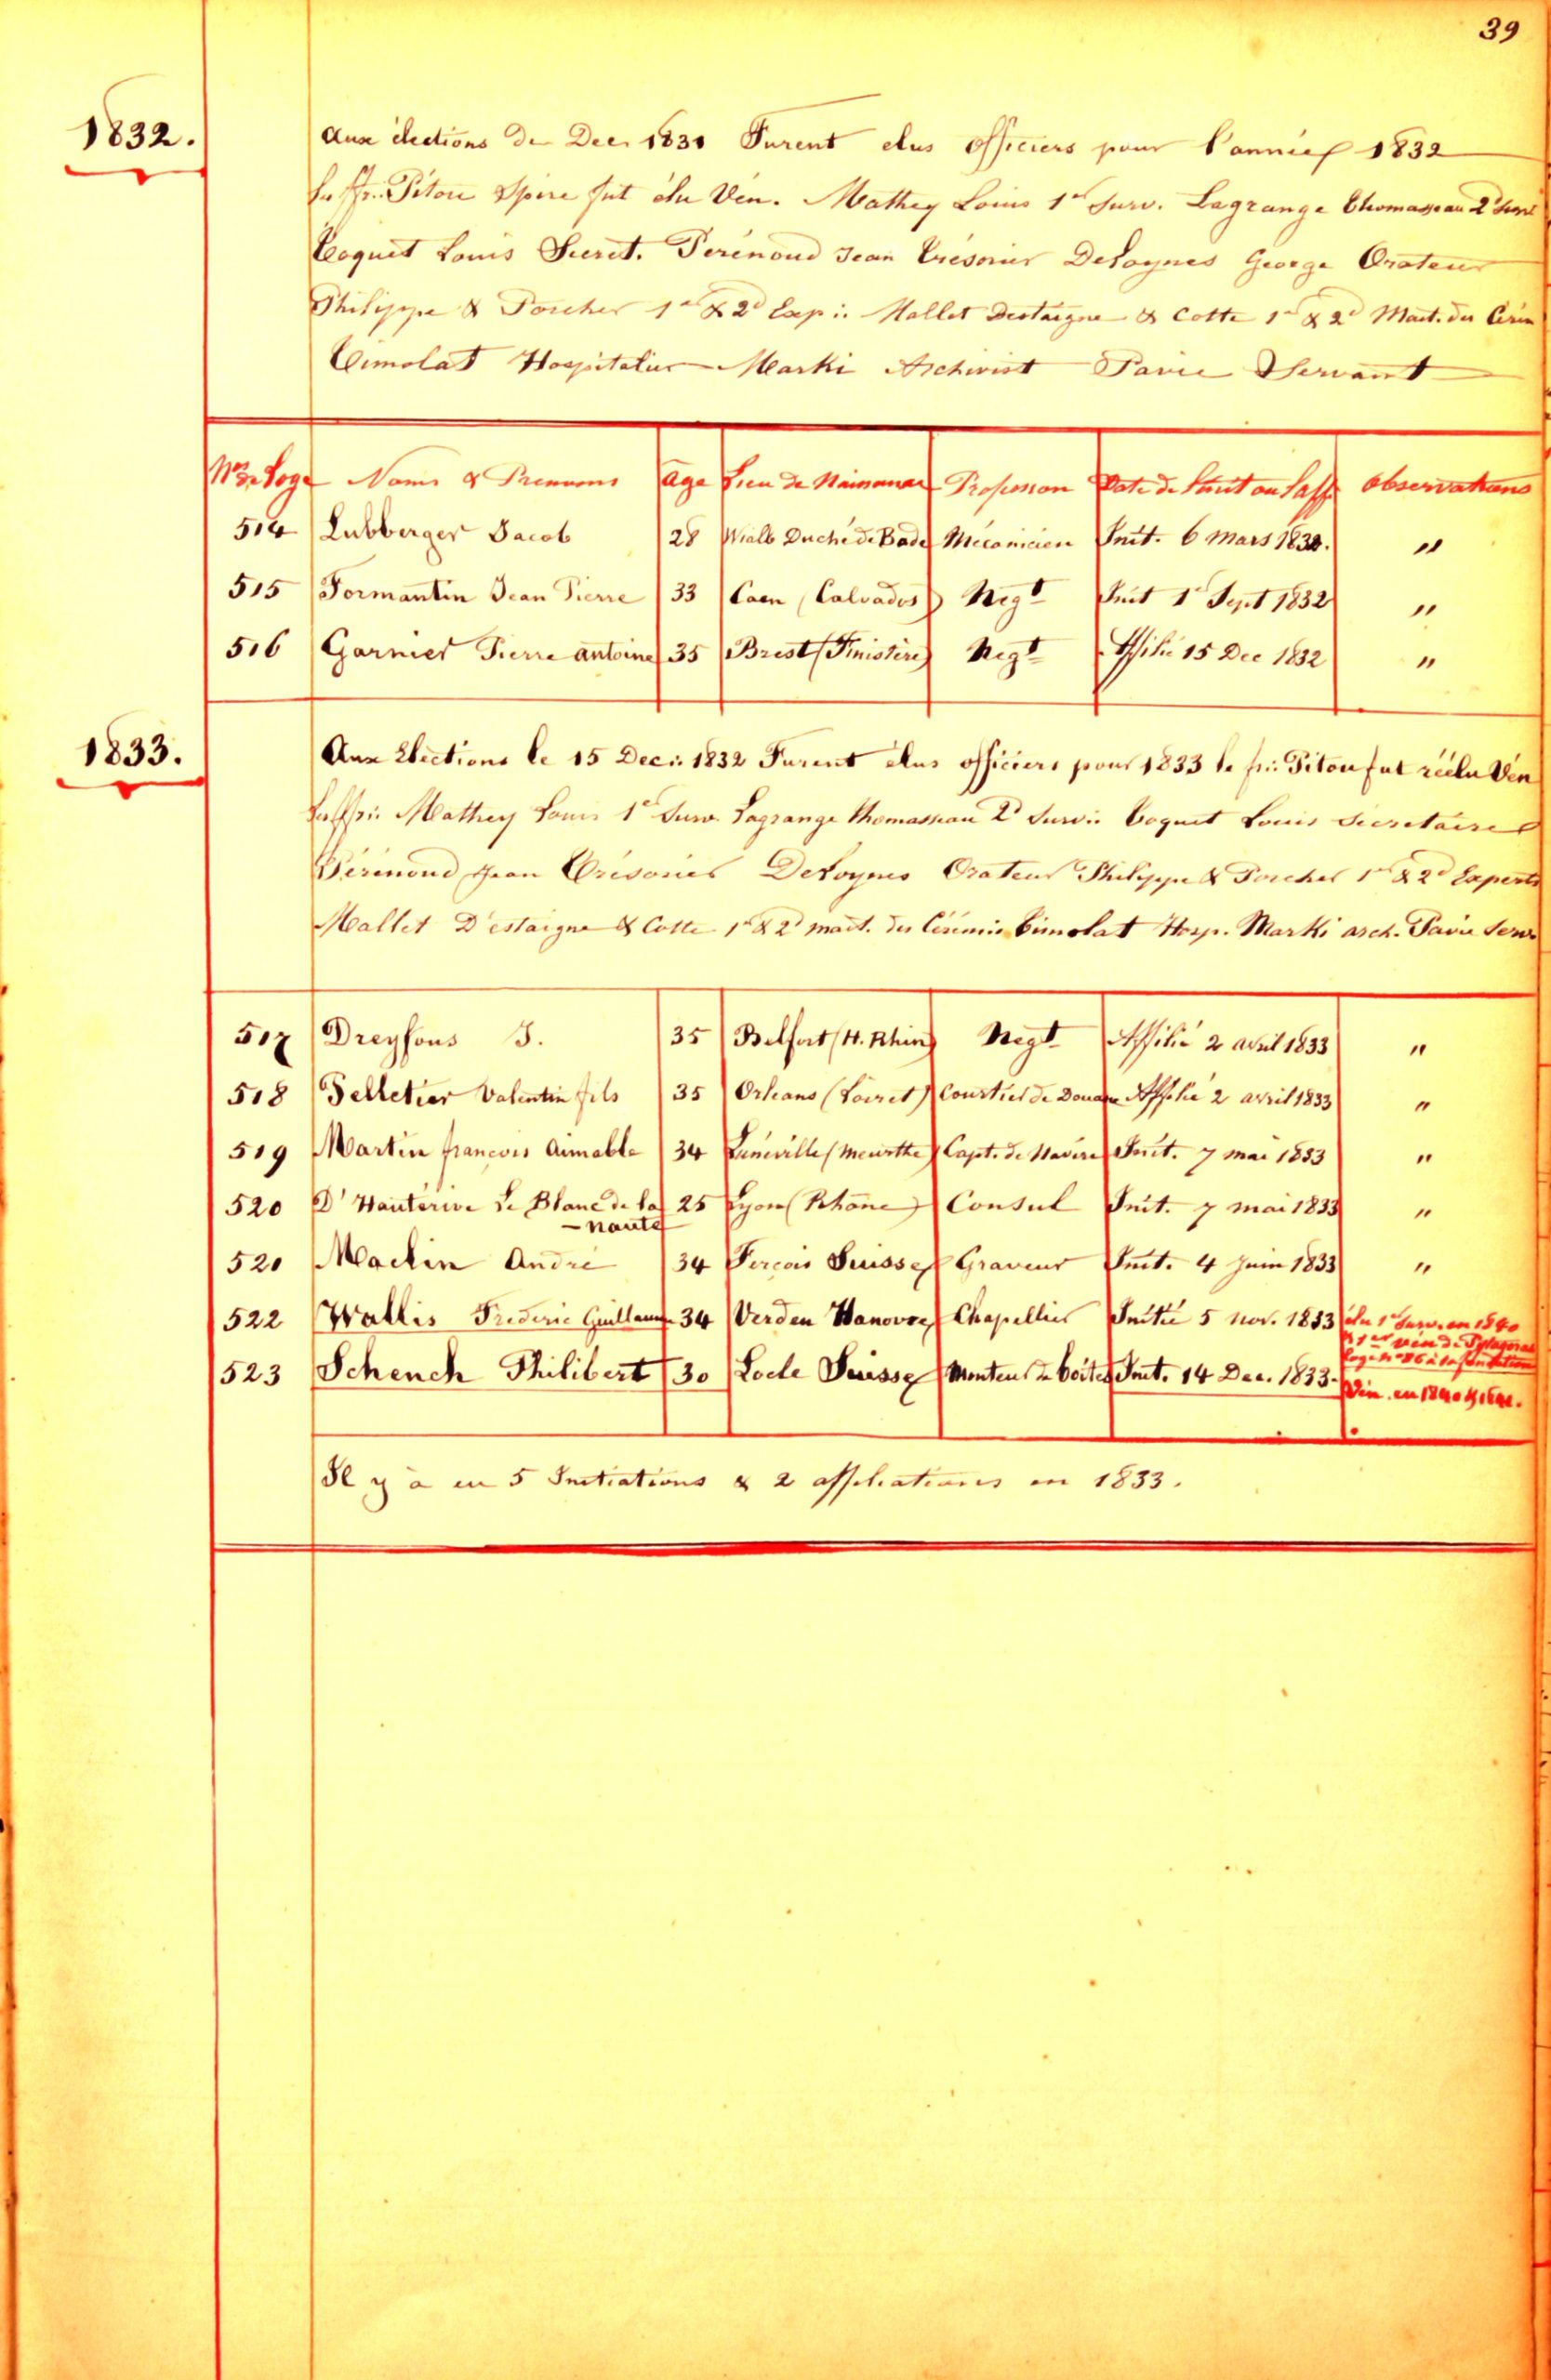 39
1832.
Aux élections de Dec. 1831 Furent elus officiers pour l'année 1832
Le ffr. Piton Spire fut élu Ven. Mathey Louis 1er Surv. Lagrange Thomasseau 2d Surv
Coquet Louis Secret. Perénoud Jean Trésorier Deloynes George Orateur
Philippe & Porcher 1er & 2d Exp. Mallet Destaigne & Cotte 1er & 2d Mait. des Cérém
Cimolat Hospitalier Marki Archivist Pavie Servant
No de Loge Noms & Prenoms Age Lieu de Naissance Profession Date de l'init ou l'aff observations
514 Lubberger Jacob 28 Duché de Bade Mécanicien Init. 6 Mars 1832. "
515 Formantin Jean Pierre 33 Caen (Calvados) Negt Init 1er Sept 1832 "
516 Garnier Pierre antoine 35 Brest (Finistère) Negt Affilié 15 Dec 1832 "
1833.
Aux Elections le 15 Dec. 1832 Furent élus officiers pour 1833 le fr. Piton fut réélu Ven
Les ffr. Mathey Louis 1er Surv. Lagrange Thomasseau 2d Surv. Coquet Louis Secretaire
Pérénoud Jean Trésorier Deloynes Orateur Philippe & Porcher 1er & 2d Experts
Mallet D'estaigne & Cotte 1er & 2d mait. des Cérémies Cimolat Hosp. Marki arch. Pavie Serv.
517 Dreyfous J. 35 Belfort (H. Rhin) Negt Affilié 2 avril 1833 "
518 Pelletier Valentin fils 35 Orleans (Loiret) Courtier de Douane Affilié 2 avril 1833 "
519 Martin francois Aimable 34 Lunéville (Meurthe) Capt. de Navire Init. 7 mai 1833 "
520 D'Hauterive Le Blanc de la 25 Lyon (Rhône) Consul Init. 7 mai 1833 "
-naute
520 Maclin André 34 Suisse Graveur Init. 4 Juin 1833 "
522 Wallis Frederic Guillaume 34 Verden Hanovre Chapellier Initié 5 Nov. 1833 élu 1er Surv. en 1840
& 1er Ven de Pytagoras
Loge No 86 à sa fondation
523 Schench Philibert 30 Locle Suisse Monteur de boites Init. 14 Dec. 1833. Ven. en 1840 & 1841.
Il y a eu 5 Initiations & 2 affiliations en 1833.